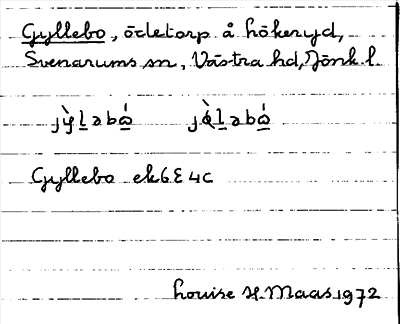 Gyllebo, ödetorp å hökeryd,
Svenarums sn, Västra hd, Jönk l.
jỳl̲əbó̲ jø̀l̲əbó̲
Gyllebo ek6E4c
Louise H. Maas 1972